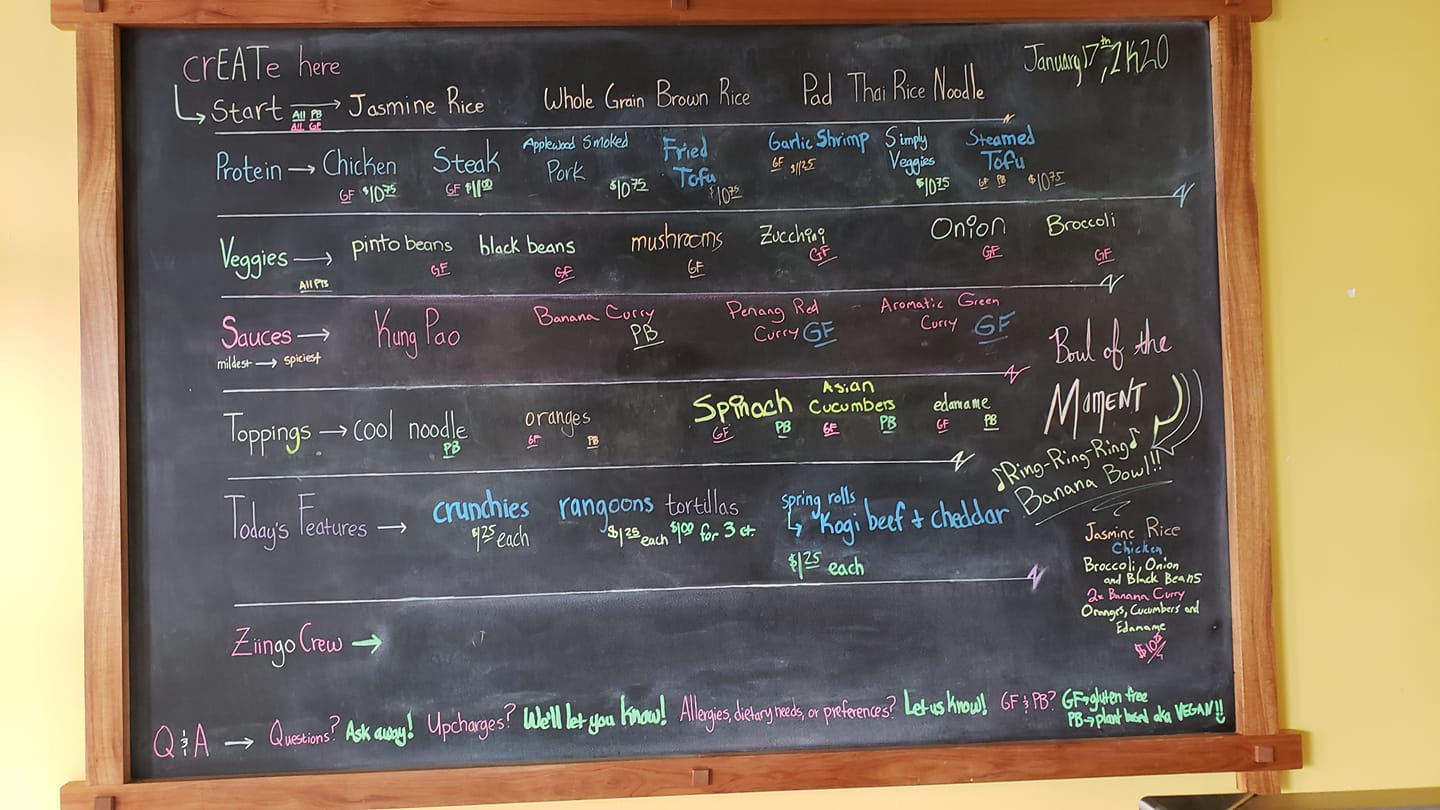 crEATe here
January 17th, 2K20
Start → Jasmine Rice Whole Grain Brown Rice Pad Thai Rice Noodle
All PB
All GF
Protein → Chicken Steak Applewood Smoked Pork Fried Tofu Garlic Shrimp Simply Veggies Steamed Tofu
GF $10.75 GF $11.00 $10.75 $10.75 GF $11.25 $10.75 GF PB $10.75
Veggies → pinto beans black beans mushrooms Zucchini Onion Broccoli
All PB GF GF GF GF GF GF
Sauces → Kung Pao Banana Curry PB Penang Red Curry GF Aromatic Green Curry GF
mildest → spiciest
Toppings → cool noodle oranges Spinach Asian Cucumbers edamame
PB GF PB GF PB GF PB GF PB
Today's Features → crunchies rangoons tortillas spring rolls
↳ Kogi beef + cheddar
$1.25 each $1.25 each $1.00 for 3 ct. $1.25 each
Ziingo Crew →
Bowl of the
Moment
♪Ring-Ring-Ring♪
Banana Bowl!!
Jasmine Rice
Chicken
Broccoli, Onion
and Black Beans
2x Banana Curry
Oranges, Cucumbers and
Edamame
$10.75
Q & A → Questions? Ask away! Upcharges? We'll let you know! Allergies, dietary needs, or preferences? Let us know! GF & PB? GF→gluten free
PB→plant based aka VEGAN!!